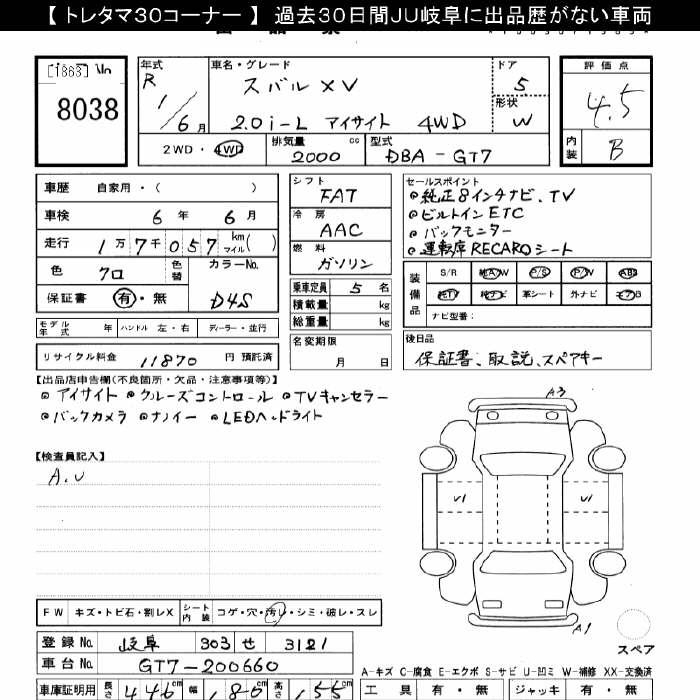 【 トレタマ30コーナー 】 過去30日間JU岐阜に出品歴がない車両
8038
年式
R 1/6月
車名・グレード
スバルXV
2.0i-L アイサイト 4WD
ドア
5
形状
W
評価点
4.5
内装
B
2WD・4WD
排気量
2000 cc
型式
DBA-GT7
車歴 自家用・( )
車検 6年 6月
走行 1万7千057 km マイル( )
色 クロ
色替
カラーNo.
D4S
保証書 有・無
シフト
FAT
冷房
AAC
燃料
ガソリン
乗車定員 5名
積載量 kg
総重量 kg
セールスポイント
純正8インチナビ、TV
ビルトインETC
バックモニター
運転席RECAROシート
装備品
S/R 純A/W P/S P/W ABS
純TV 純ナビ 革シート 外ナビ エアB
ナビ型番:
モデル年式 年 ハンドル 左・右 ディーラー・並行
リサイクル料金 11870 円預託済
名変期限
月 日
後日品
保証書、取説、スペアキー
【出品店申告欄(不良箇所・欠品・注意事項等)】
アイサイト クルーズコントロール TVキャンセラー
バックカメラ ナノイー LEDヘッドライト
【検査員記入】
A.U
A3
U1
U1
A1
スペア
FW キズ・トビ石・割レX
シート内装 コゲ・穴・汚レ・シミ・破レ・スレ
登録No. 岐阜 303 せ 3121
車台No. GT7-200660
車庫証明用 長さ 446cm 幅 180cm 高さ 155cm
A-キズ C-腐食 E-エクボ S-サビ U-凹ミ W-補修 XX-交換済
工具 有・無 ジャッキ 有・無